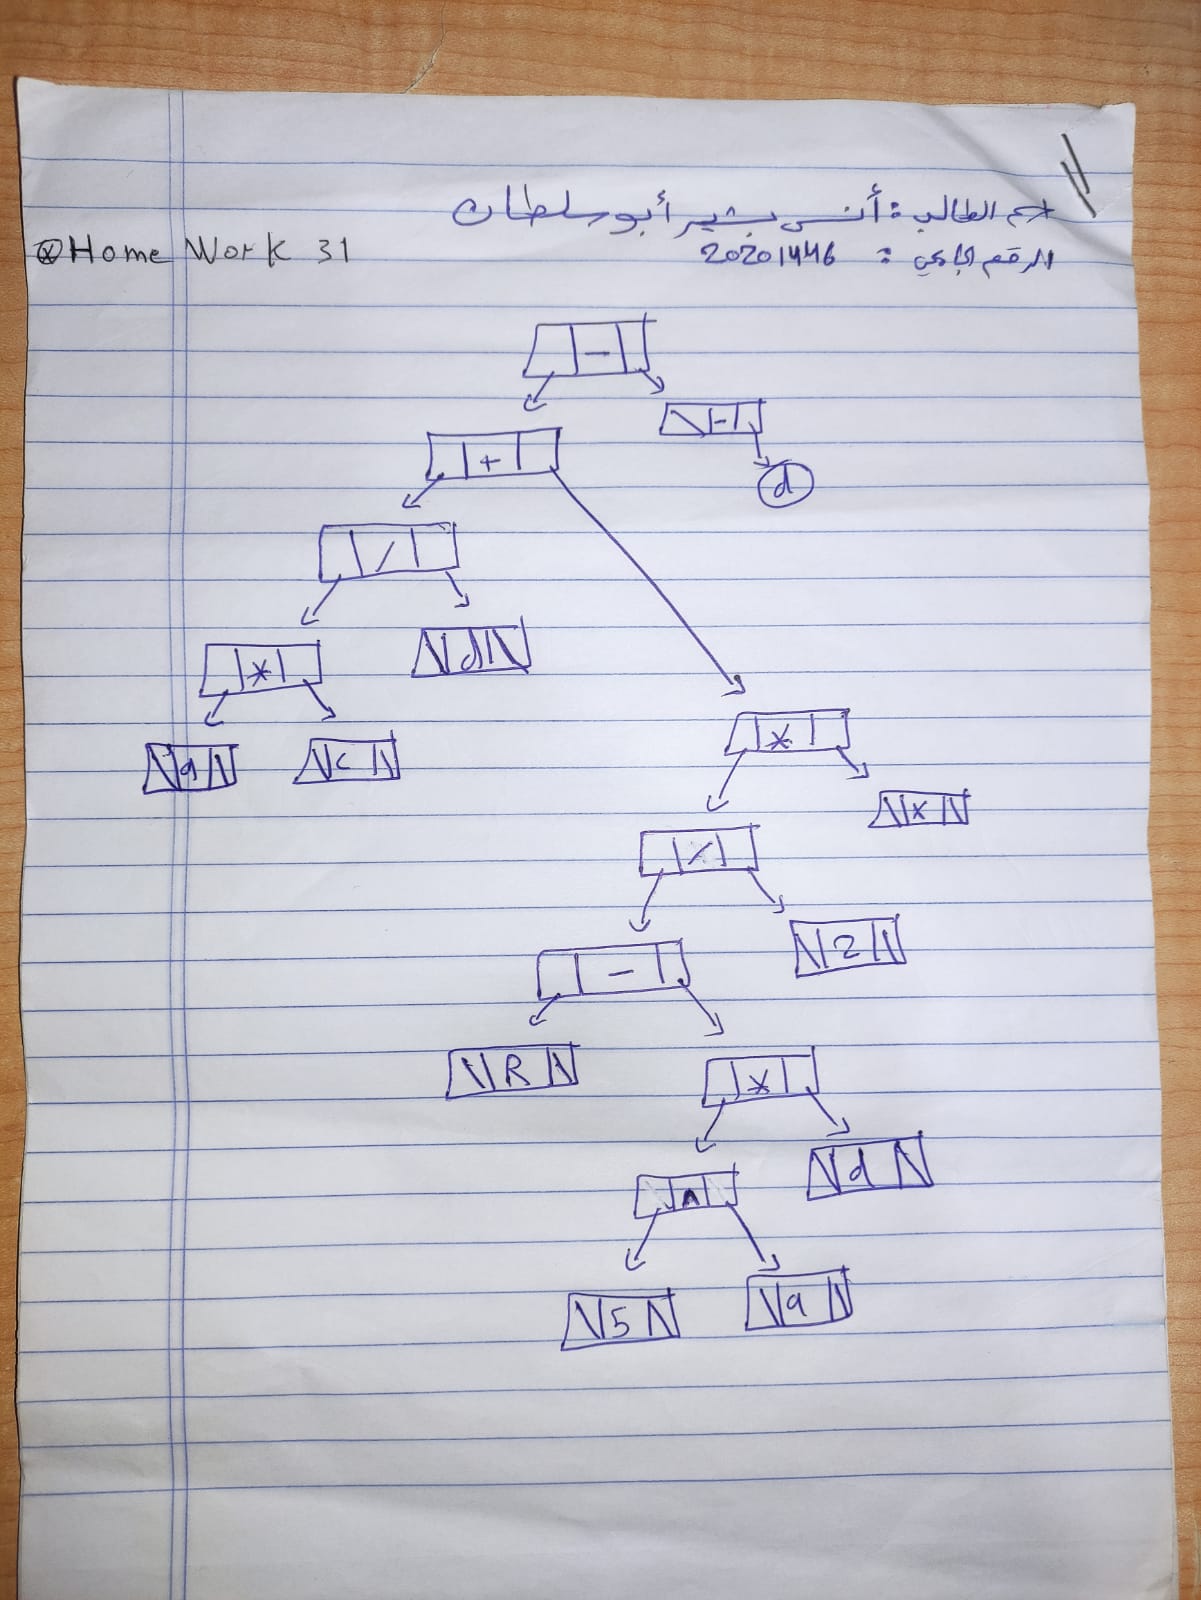 اسم الطالب : أنس بشير أبو سلطان
الرقم الجامعي : 20201446
Home Work 31
-
+ -
d
/
* d
a c * x
/
- 2
R *
^ d
5 a